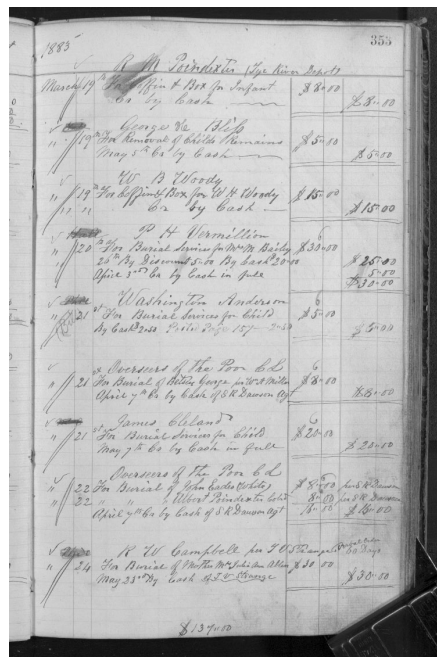 353
1883
R M Poindexter (Tye River Depot)
March 19th For Coffin & Box for Infant $8-00
Cr by Cash $8-00
George De Bliss
" 19th For Removal of Childs Remains $5-00
May 5th Cr by Cash $5-00
W B Woody
" 19th For Coffin & Box for W H Woody $15-00
" " Cr by Cash $15-00
P H Vermillion
" 20th For Burial Services for Mrs M Bailey $30-00
26th By Discount 5-00 By Cash 20-00 $25-00
April 3rd Cr by Cash in full 5-00
$30-00
Washington Anderson
" 21st For Burial Services for Child $5-00
By Cash 2.50 Page 157 2-50 $5-00
Overseers of the Poor C L
" 21st For Burial of George per W A $8-00
April 7th Cr by Cash of S R Dawson Agt $8-00
James Cleland
" 21st For Burial Services for Child $20-00
May 7th Cr by Cash in full $20-00
Overseers of the Poor C L
" 22 For Burial of John (White) $8-00 per S R Dawson
" 22 " " Albert Poindexter 8-00 per S R Dawson
April 7th Cr by Cash of S R Dawson Agt 16-00 $16-00
R W Campbell per 30 Days
" 24 For Burial of Mother Mrs Ann $30-00
May 23rd By Cash of $30-00
$137-00